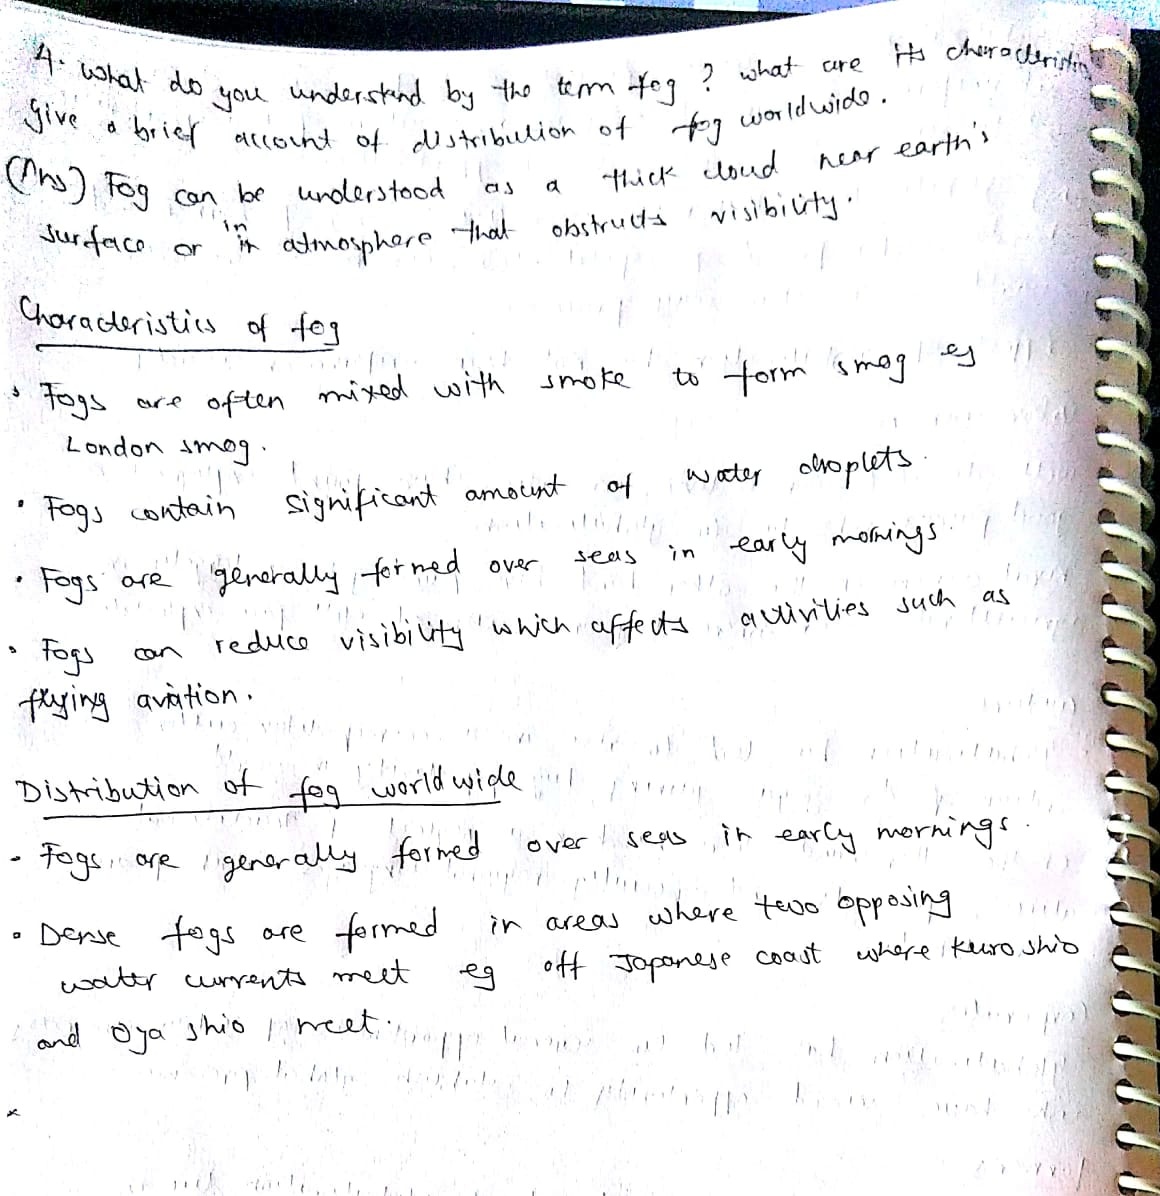 4. What do you understand by the term fog? what are its characteristics
Give a brief account of distribution of fog worldwide.
(Ans) Fog can be understood as a thick cloud near earth's
surface or in atmosphere that obstructs visibility.
Characteristics of fog
• Fogs are often mixed with smoke to form smog eg
London smog.
• Fogs contain significant amount of water droplets.
• Fogs are generally formed over seas in early mornings
• Fogs can reduce visibility which affects activities such as
flying aviation.
Distribution of fog worldwide
• Fogs are generally formed over seas in early mornings.
• Dense fogs are formed in areas where two opposing
water currents meet eg off Japanese coast where Kuroshio
and Oyashio meet.